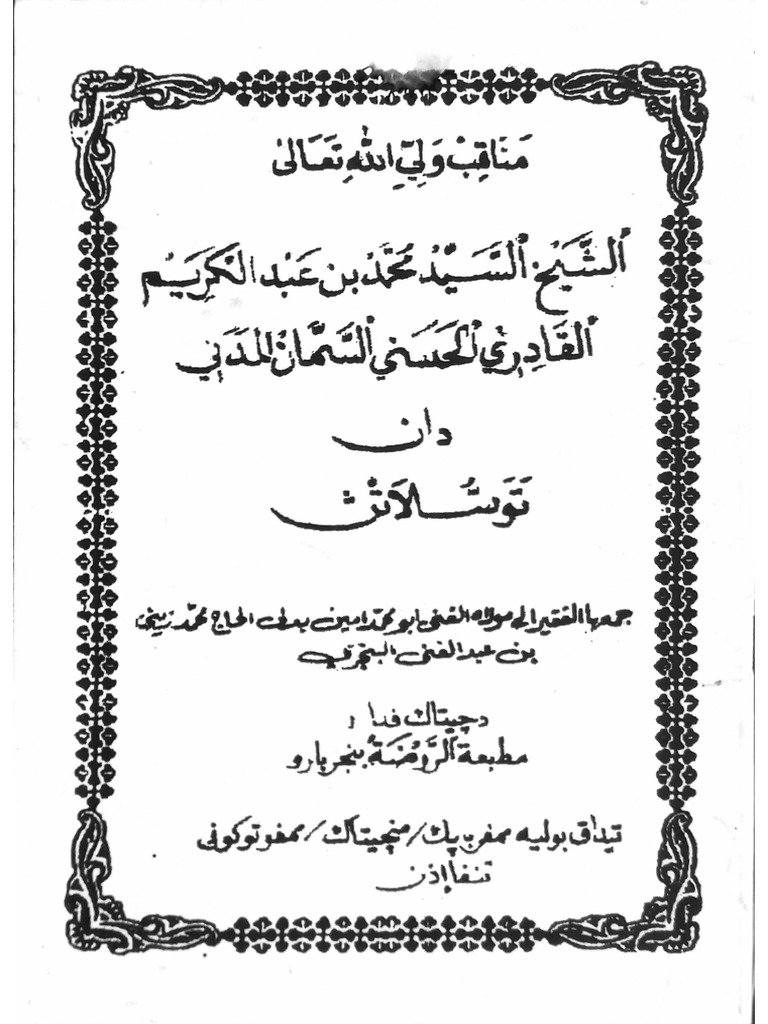 مَنَاقِبْ وَلِيِّ اللهِ تَعَالىٰ
اَلشَّيْخ اَلسَّيِّدْ مُحَمَّدْ بِن عَبْدِ الْكَرِيْمْ
اَلْقَادِرِيْ اَلْحَسَنِيْ اَلسَّمَّانْ اَلْمَدَنِيْ
دان
تَوَسُّلاَتْث
جمعها الفقير الى مولاه الغنى ابو محمد امين بدلى الحاج محمد زينى
بن عبد الغنى البنجرى
دچيتاك فدا :
مطبعة اَلرَّوْضَةُ بنجربارو
تيداق بوليه ممفربپك/منچيتاك/ممفوتوكوفى
تنفا إذن